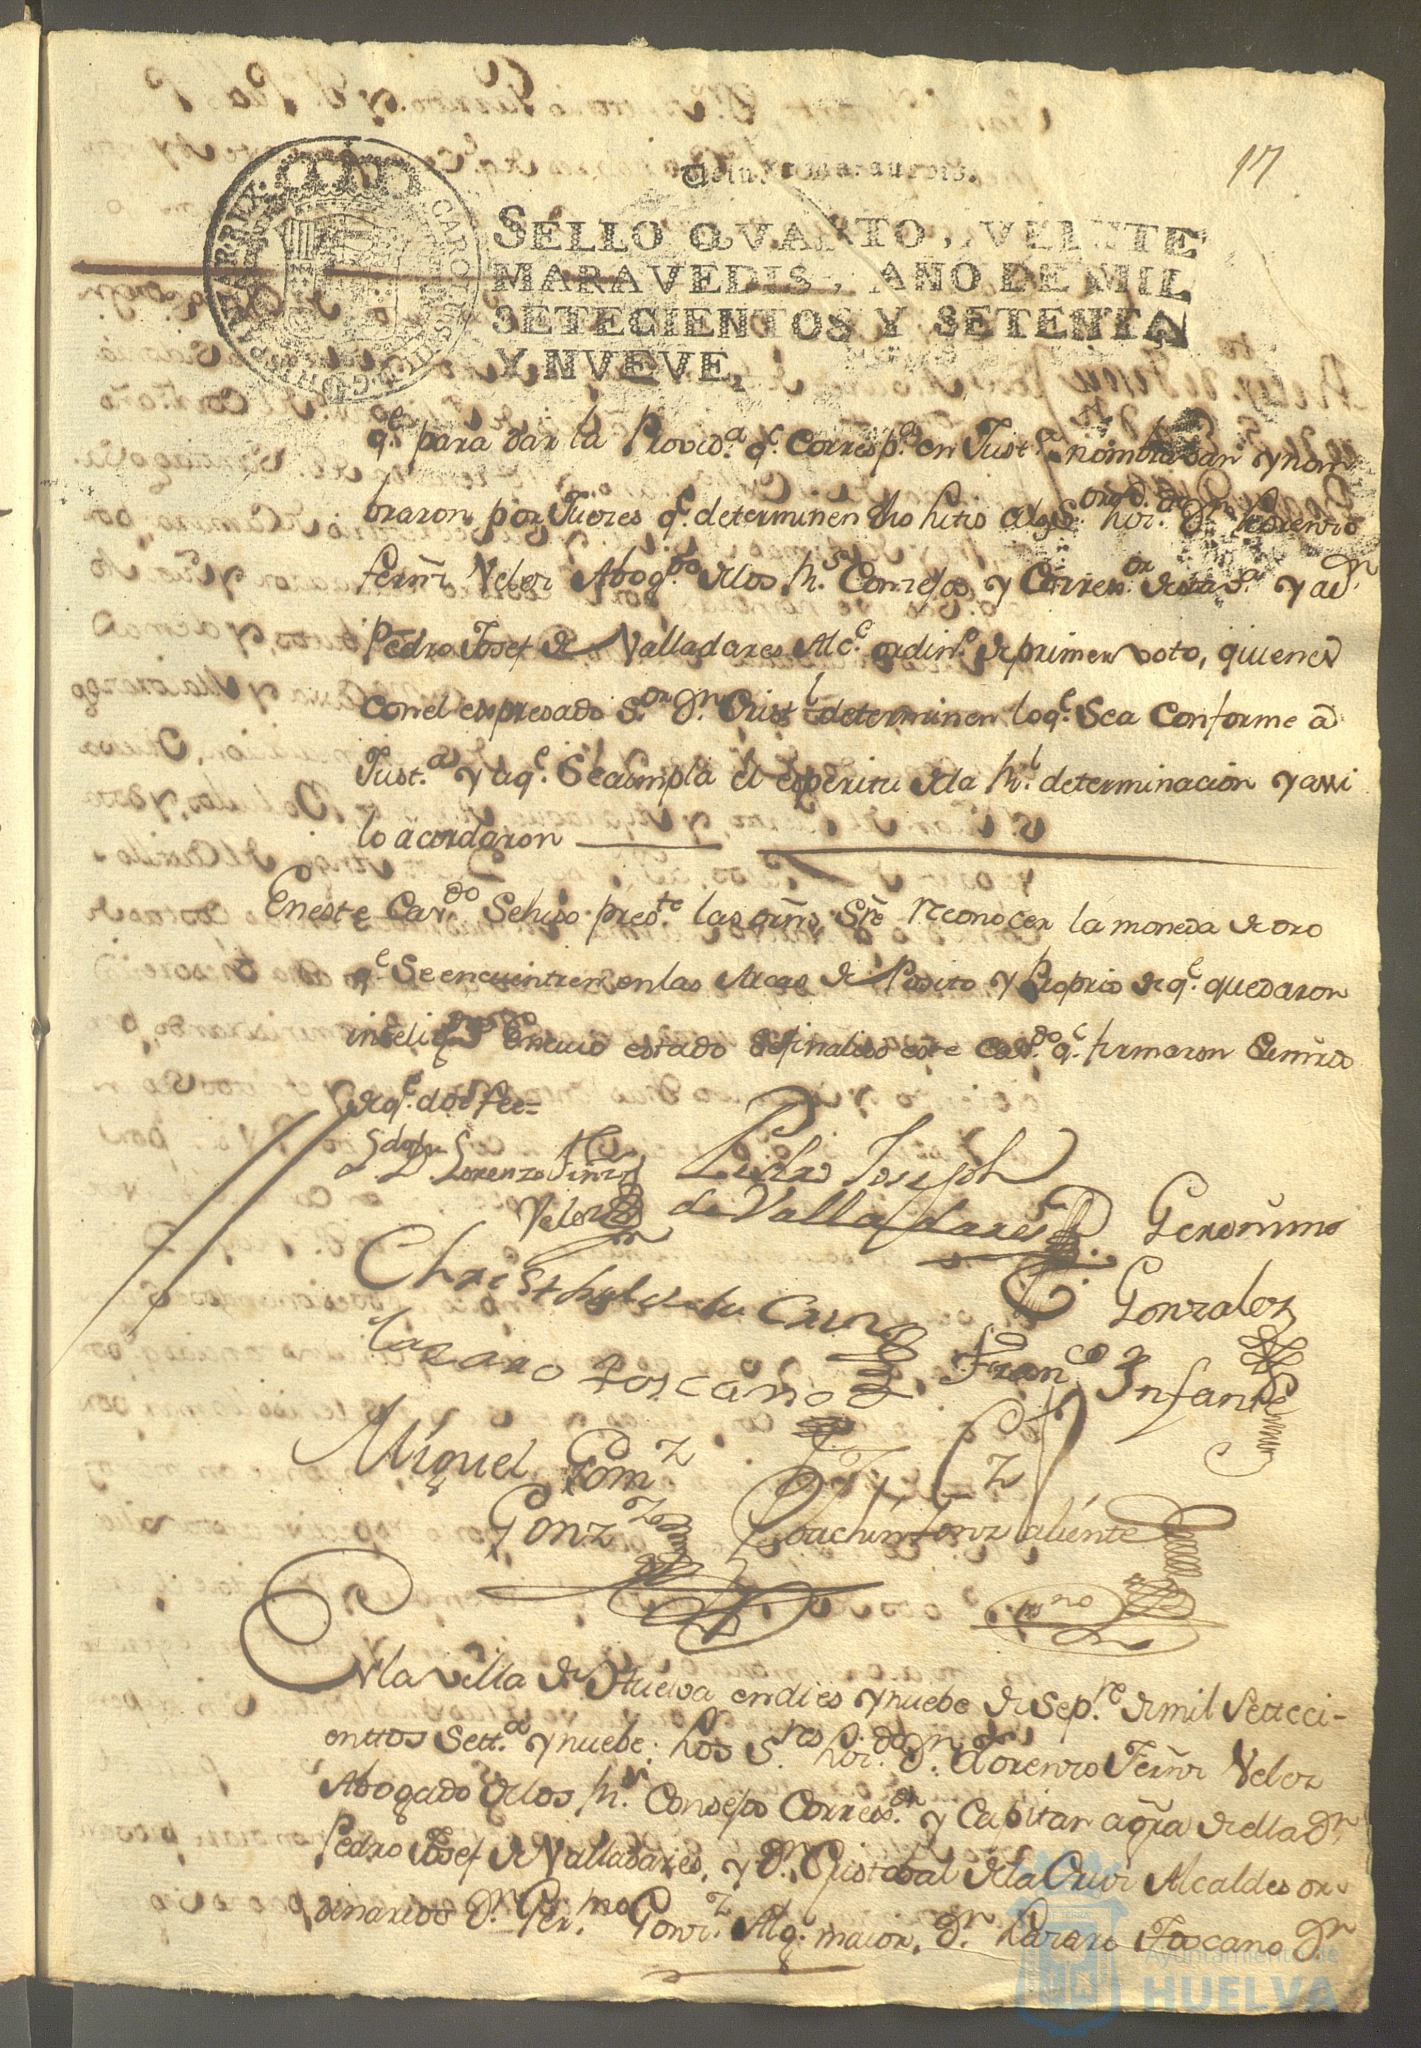 17
SELLO QVARTO, VEINTE
MARAVEDIS, AÑO DE MIL
SETECIENTOS Y SETENTA
Y NVEVE,
qe. para dar la Provida. qe. Correspa. en Justa. nombraban y nom
braron por Jueces qe. determinen dho hitio
Fernz Velez Abogdo. delos Rs. Consejos, y Corresor. desta Va. y a dn
Pedro Josef de Valladares Alce. ordino. de primer voto, quienes
con el expresado Sor. Dn. Cristl determinen lo qe. Sea Conforme a
Justa. y a qe. Se cumpla el esperitu dela Rl. determinacion y assi
lo acordaron
En este Cavdo Sehiso preste las orns, Sre. reconocer la moneda de oro
qe Se encuentren en las Arcas de Posito y Proprios de qe. quedaron
en cuio estado sefinaliso este Cavdo. qe. firmaron Sumrds
de qe. doi fee=
Dn. Lorenzo Fernz
Velez
Pedro Joseph
de Valladares
Geronimo
Gonzalez
Christobal de la Cruz
Lazaro Toscano
Franco Infante
Miguel Gomz
Gonzz
Joachin Gonz aliente
En la villa de Huelva en dies y nuebe de Sepre. de mil Setteci-
enttos Setta. y nuebe: Los Sres. Lizdo. Dn. Lorenzo Fernz Velez
Abogado delos Rs. Consejos Corresor. y Capitan a gra de ella Dn
Pedro Josef de Valladares, y Dn. Cristobal dela Cruz Alcaldes or-
dinarios Dn. Germo Gonzz. Alg. maior, Dn. Lazaro Toscano Dn
Ayuntamiento de
HUELVA